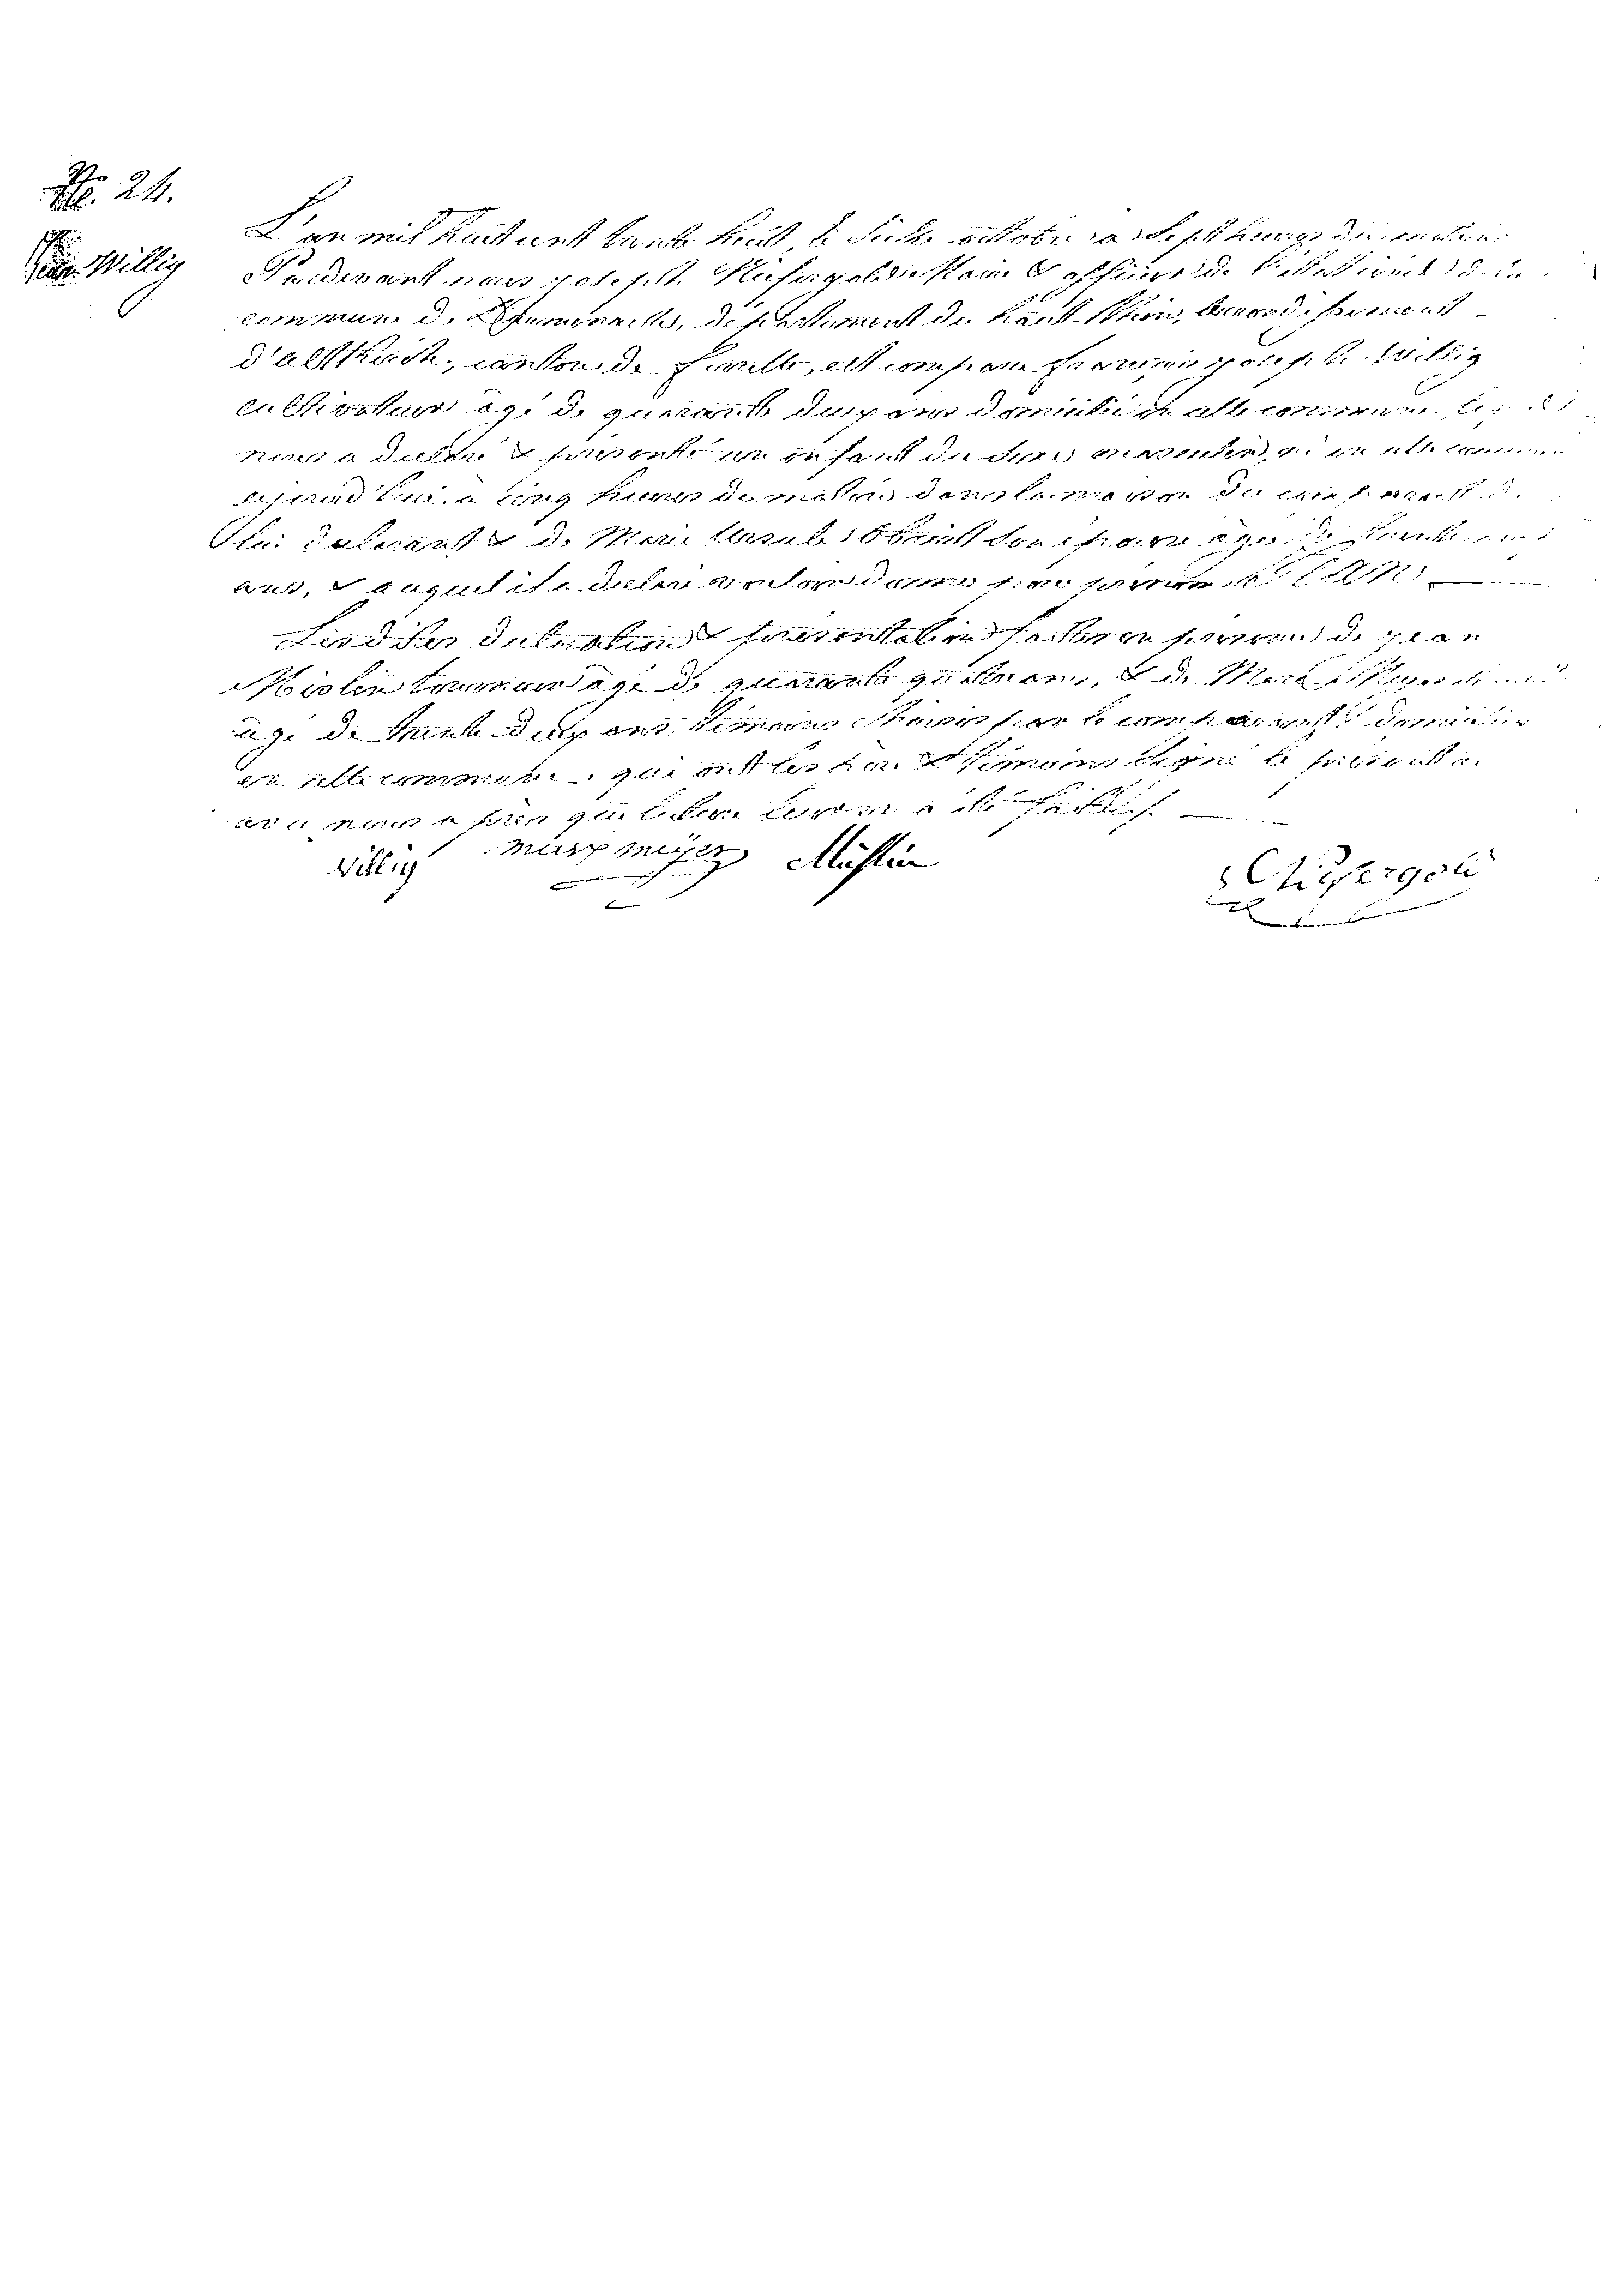 No. 24.
Jean Willig
L'an mil huit cent trente huit, le octobre à sept heures du matin
Pardevant nous joseph Maire & officier de l'état civil de la
commune de département du haut Rhin, arrondissement
d'altkirch, canton de ferrette, est comparu joseph Willig
cultivateur agé de quarante deux ans domicilié en cette commune lequel
nous a declaré & presenté un enfant du sexe masculin, né en cette commune
ajourd'hui à cinq heures du matin dans la maison du comparant de
lui declarant & de Marie Ursule son epouse agée de trente
ans, & auquel il a declaré vouloir donner pour prenom JEAN
Lesdites declaration & presentation faites en presence de jean
Mislin tisserand agé de quarante quatre ans, & de Marx Meyer
agé de trente deux ans temoins choisis par le comparant & domiciliés
en cette commune. qui ont les père & temoins signé le present
avec nous après que lecture leur en a été faite.
Willig marx meÿer Müslin